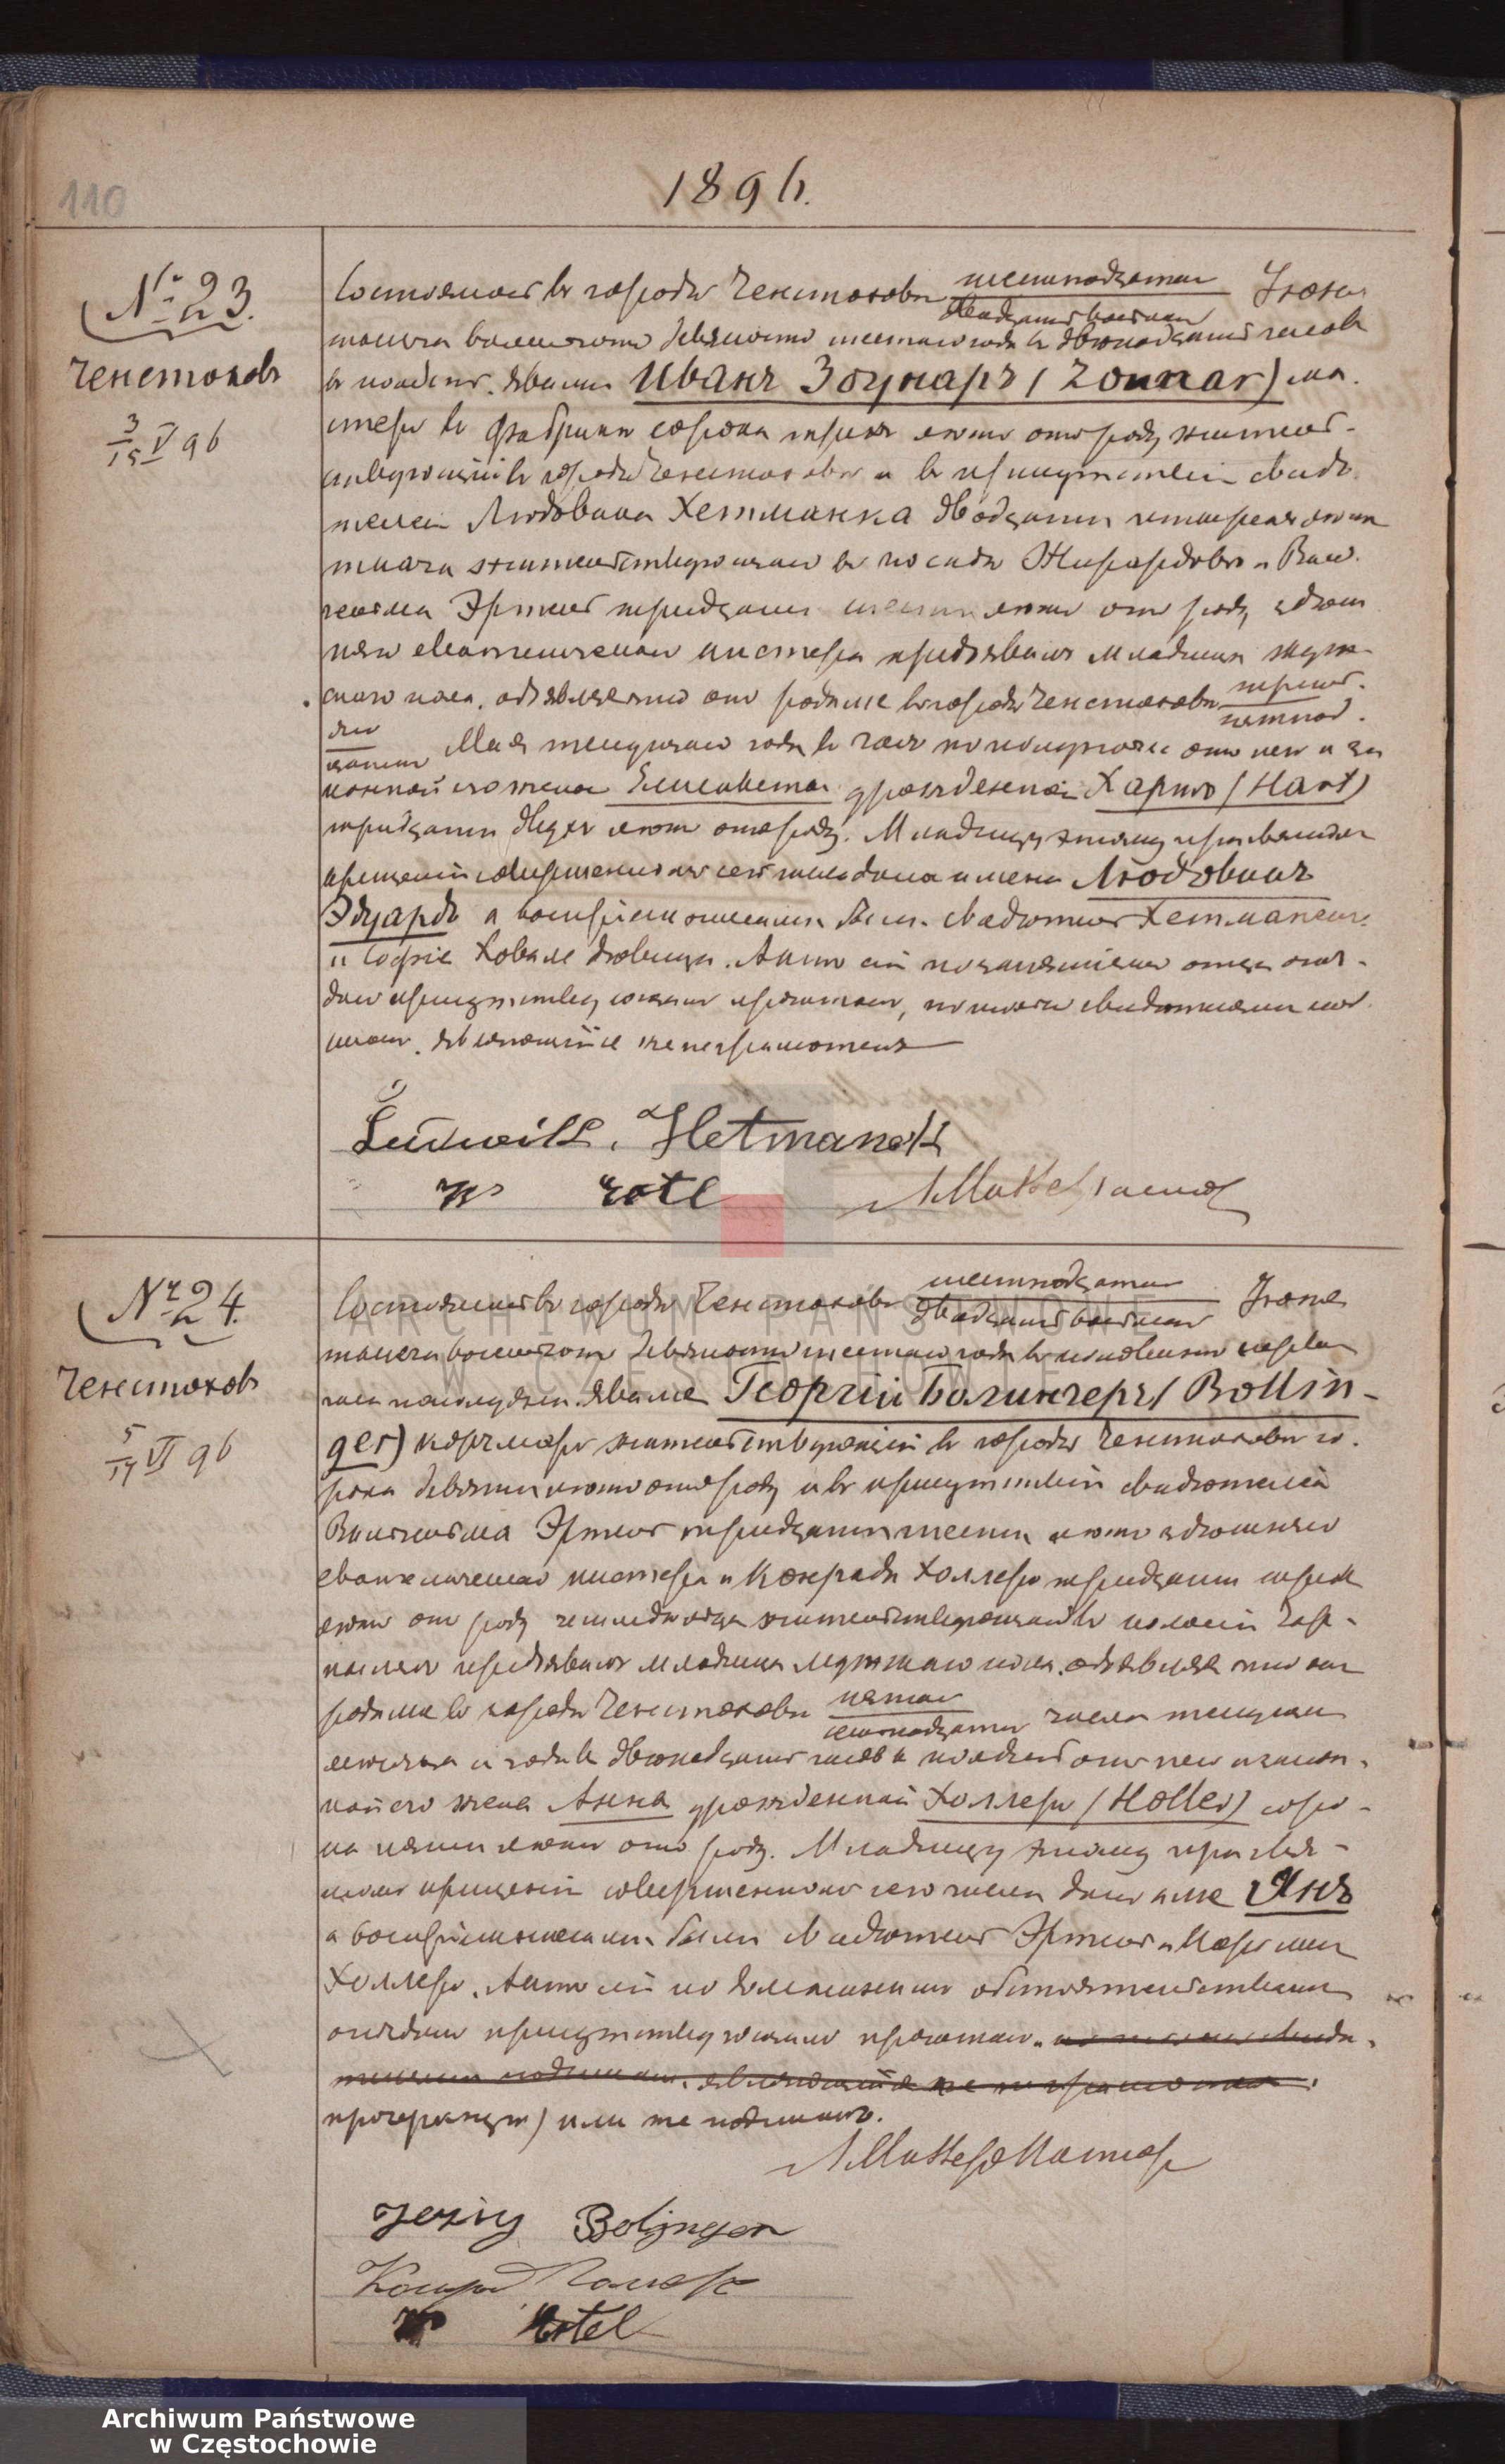 110
1896.
№ 23.
Ченстоховъ
3/15 V 96
Состоялось въ городѣ Ченстоховѣ шестнадцатаго Іюня
двадцать восьмаго
тысяча восемьсотъ девяносто шестаго года въ двѣнадцать часовъ
въ полдень. Явился Иванъ Зоунаръ (Zounar) ма-
стеръ въ фабрикѣ сорока трехъ лѣтъ отъ роду жительс-
твующій въ городѣ Ченстоховѣ и въ присутствіи свидѣ-
телей Людвика Хетманека двадцати четырехъ лѣтъ
ткача жительствующаго въ посадѣ Жирардовѣ и Виль-
гельма Эртель тридцати шести лѣтъ отъ роду здѣш-
няго евангелическаго кистера предъявилъ младенца муж-
скаго пола, объявляя что онъ родился въ городѣ Ченстоховѣ третья-
пятнад-
го
цатаго Мая текущаго года въ часъ по полуночи отъ него и за-
конной его жены Елисаветы урожденной Хартъ (Hart)
тридцати двухъ лѣтъ отъ роду. Младенцу этому при святомъ
крещеніи совершенномъ сего числа дано имена Людовикъ
Эдуардъ а воспріемниками были свидѣтель Хетманекъ
и Софіе Ковалевдовица. Актъ сей по занятіямъ отца опоз-
данъ присутствующимъ прочитанъ, нами и свидѣтелями под-
писанъ. являющійся же неграмотенъ
Ludwik. Hetmanek
W rotl
№ 24.
Ченстоховъ
5/17 VI 96
Состоялось въ городѣ Ченстоховѣ шестнадцатаго Іюня
двадцать восьмаго
тысяча восемьсотъ девяносто шестаго года въ половинѣ перваго
часа пополудни. Явился Георгій Болингеръ (Bollin-
ger) корчмаръ жительствующій въ городѣ Ченстоховѣ со-
рока девяти лѣтъ отъ роду и въ присутствіи свидѣтелей
Вильгельма Эртель тридцати шести лѣтъ здѣшняго
евангелическаго кистера и Конрада Холлеръ тридцати трехъ
лѣтъ отъ роду земледѣльца жительствующаго въ колоніи Чар-
нылясъ предъявилъ младенца мужскаго пола, объявляя что онъ
родился въ городѣ Ченстоховѣ пятаго числа текущаго
семнадцатаго
мѣсяца и года въ двѣнадцать часовъ въ полдень отъ него и закон-
ной его жены Анна урожденной Холлеръ (Holler) соро-
ка пяти лѣтъ отъ роду. Младенцу этому при свя-
томъ крещеніи совершенномъ сего числа дано имя Янъ
а воспріемниками были свидѣтель Эртель и Каролина
Холлеръ. Актъ сей по домашнимъ обстоятельствамъ
опозданъ присутствующимъ прочитанъ.
прочеркнут) или же подписанъ.
Jerzy Bolingen
W Ertel
ARCHIWUM PAŃSTWOWE
W CZĘSTOCHOWIE
Archiwum Państwowe
w Częstochowie